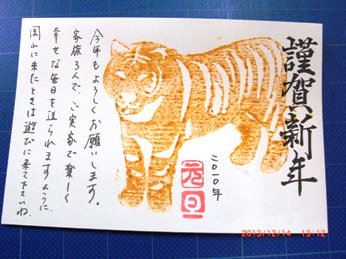 謹賀新年
二〇一〇年
元旦
今年もよろしくお願いします。
家族3人で、ご実家で楽しく
幸せな毎日を送られますように。
岡山に来たときは遊びに来て下さいね。
2013/12/14 13:12